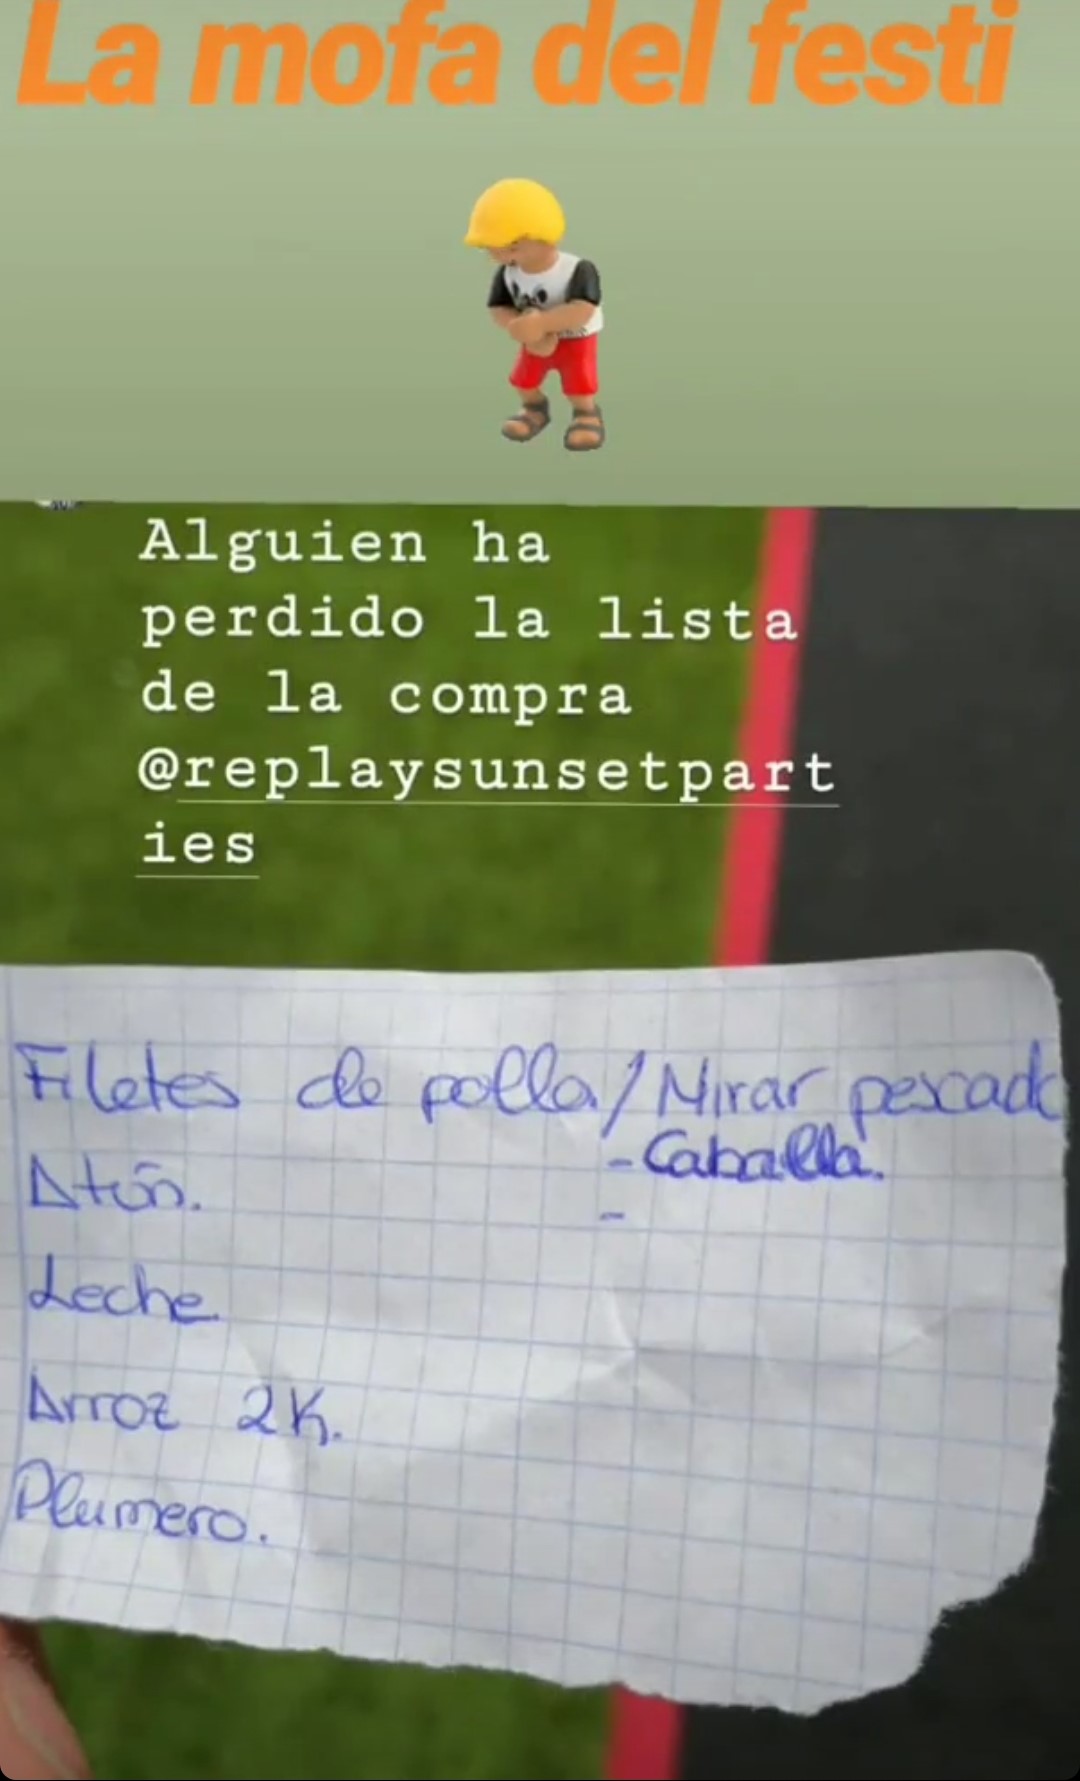 La mofa del festi
Alguien ha
perdido la lista
de la compra
@replaysunsetpart
ies
Filetes de pollo / Mirar pescado
- Caballa.
Atún.
-
Leche
Arroz 2K.
Plumero.